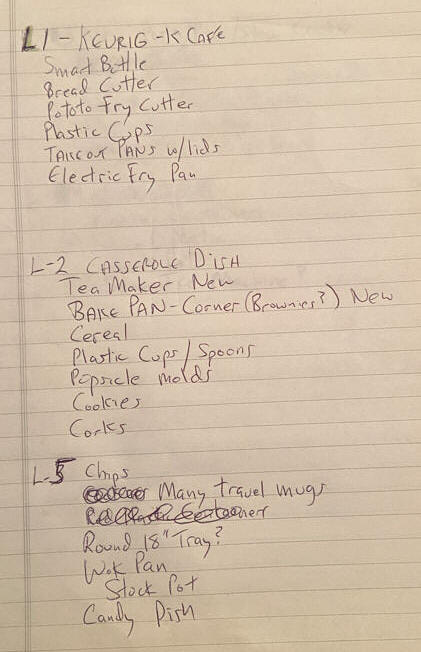 L1 - KEURIG - K Cafe
Smart Bottle
Bread Cutter
Pototo Fry Cutter
Plastic Cups
TAKEOUT PANS w/lids
Electric Fry Pan
L-2 CASSEROLE DISH
Tea Maker New
BAKE PAN - Corner (Brownies?) New
Cereal
Plastic Cups / Spoons
Popsicle molds
Cookies
Corks
L-3 Chips
Many travel mugs
Round 18" Tray?
Wok Pan
Stock Pot
Candy Dish